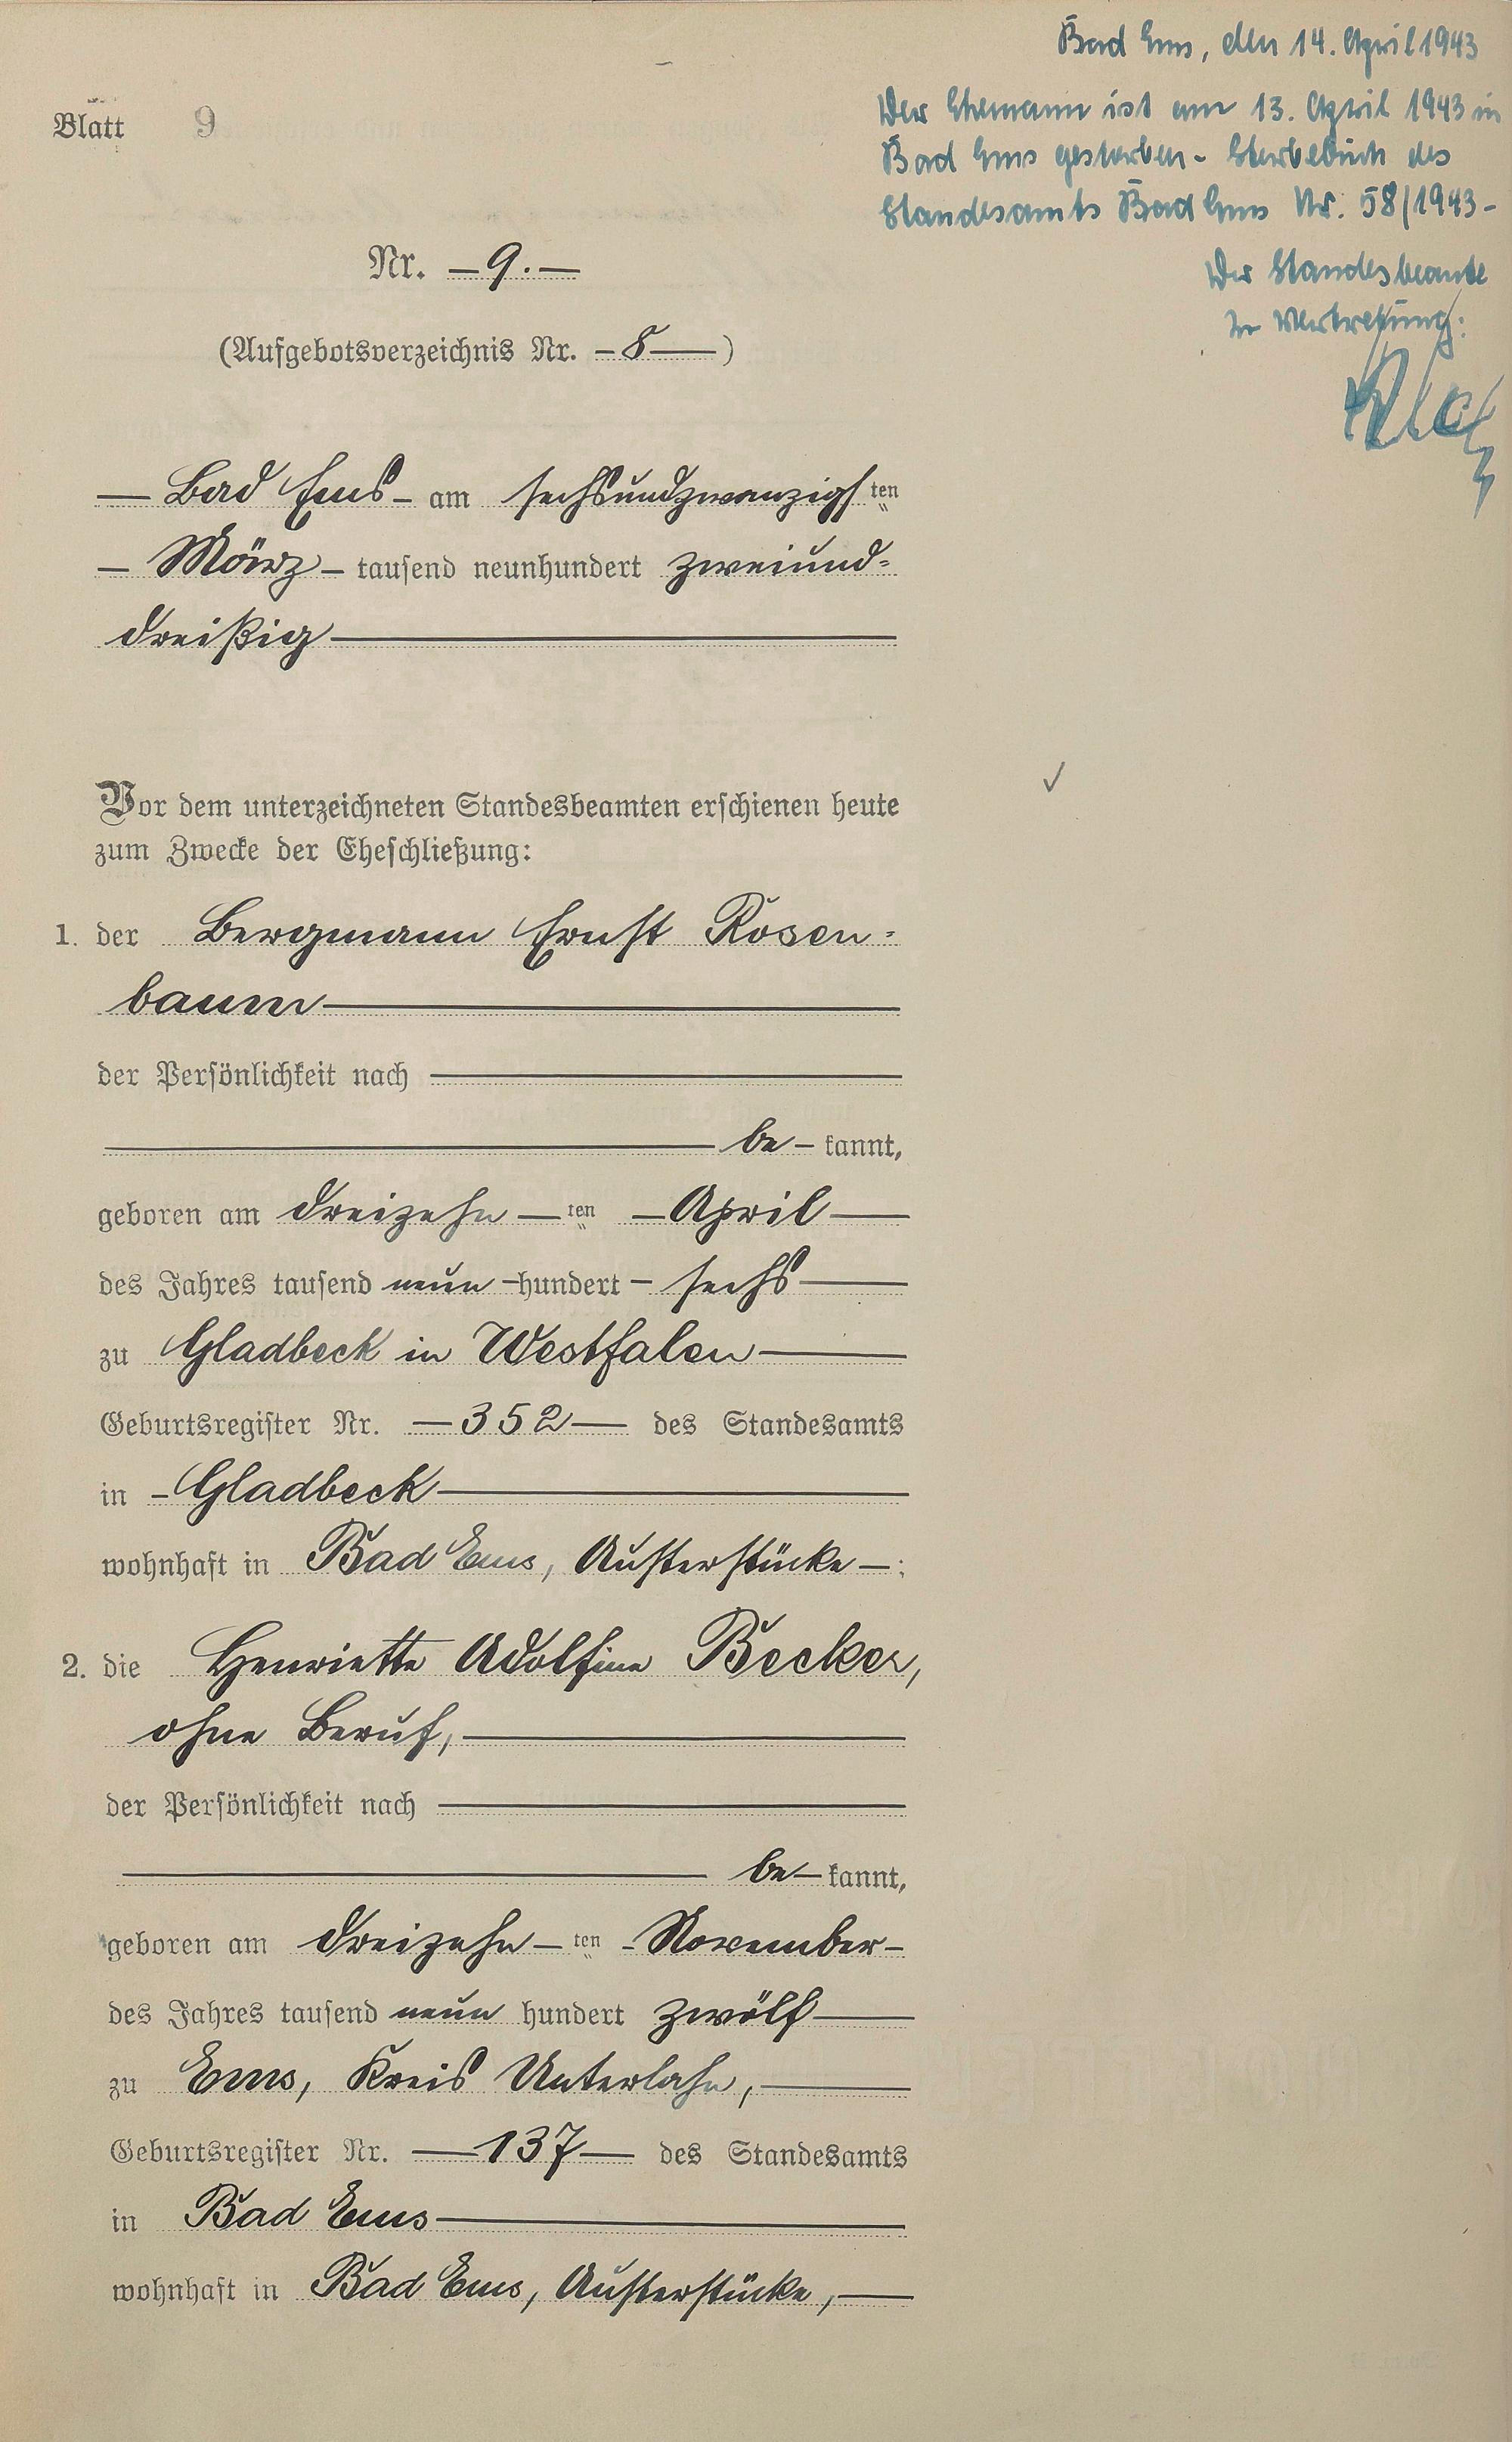 Bad Ems, den 14. April 1943
Der Ehemann ist am 13. April 1943 in
Bad Ems gestorben - Sterbebuch des
Standesamts Bad Ems Nr. 58/1943 -
Der Standesbeamte
In Vertretung:
Blatt 9
Nr. — 9. —
(Aufgebotsverzeichnis Nr. — 8 —)
— Bad Ems — am sechsundzwanzigsten
— März — tausend neunhundert zweiund=
dreißig —
Vor dem unterzeichneten Standesbeamten erschienen heute
zum Zwecke der Eheschließung:
1. der Bergmann Ernst Rosen=
baum —
der Persönlichkeit nach —
— be — kannt,
geboren am dreizehn — ten — April —
des Jahres tausend neun — hundert — sechs —
zu Gladbeck in Westfalen —
Geburtsregister Nr. — 352 — des Standesamts
in — Gladbeck —
wohnhaft in Bad Ems, Austerstücke — ;
2. die Henriette Adolfine Becker,
ohne Beruf, —
der Persönlichkeit nach —
— be — kannt,
geboren am dreizehn — ten — November —
des Jahres tausend neun hundert zwölf —
zu Ems, Kreis Unterlahn, —
Geburtsregister Nr. — 137 — des Standesamts
in Bad Ems —
wohnhaft in Bad Ems, Austerstücke, —